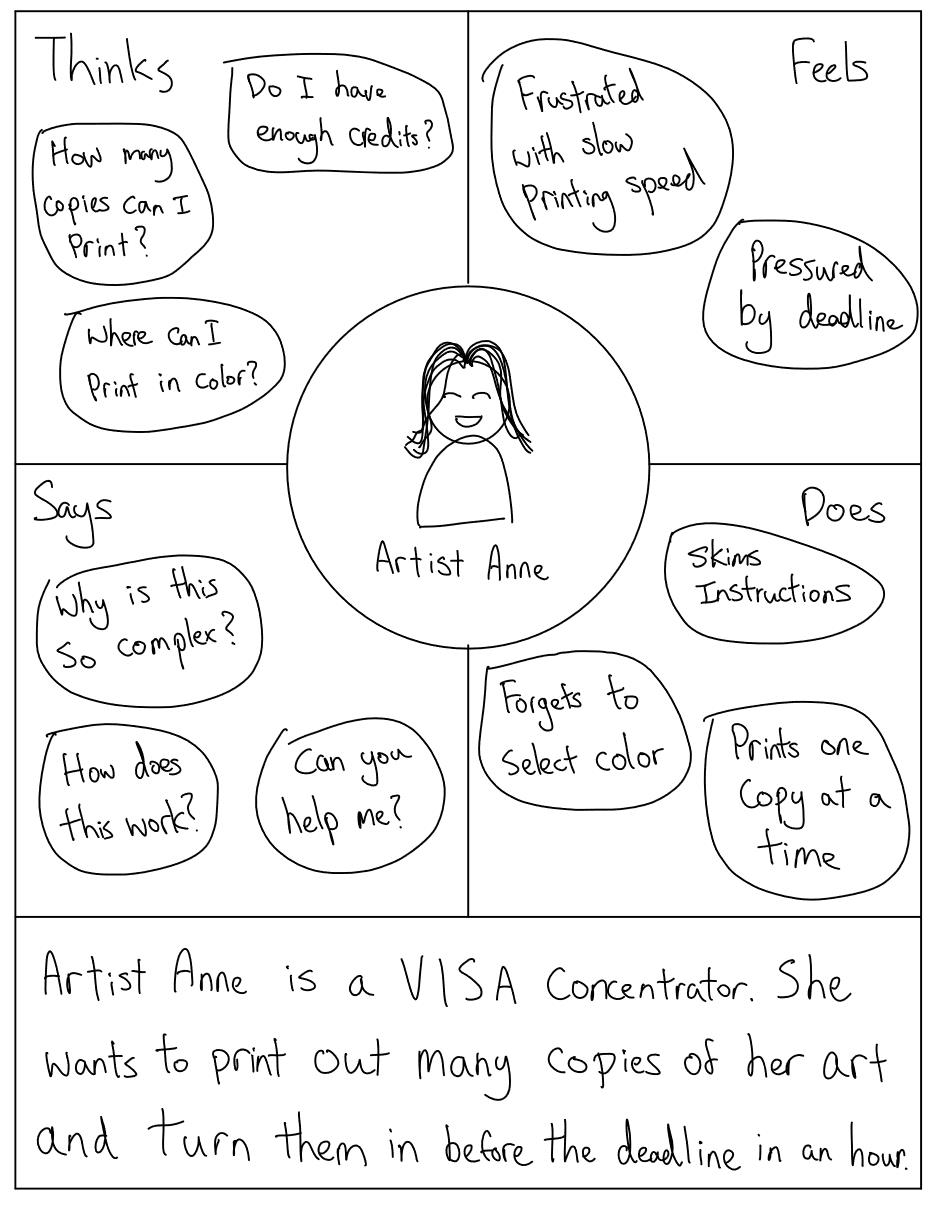 Thinks
Do I have
enough credits?
How many
copies can I
Print?
Where can I
Print in color?
Feels
Frustrated
with slow
Printing speed
Pressured
by deadline
Artist Anne
Says
Why is this
so complex?
How does
this work?
Can you
help me?
Does
Skims
Instructions
Forgets to
select color
Prints one
Copy at a
time
Artist Anne is a VISA Concentrator. She
wants to print out many copies of her art
and turn them in before the deadline in an hour.